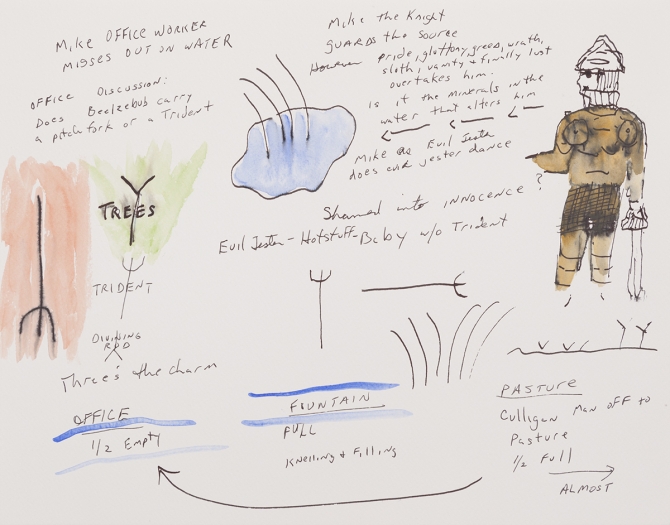 Mike OFFICE WORKER
MISSES OUT ON WATER
OFFICE DISCUSSION:
Does Beelzebub carry
a pitchfork or a Trident
Mike the Knight
guards the source
However pride, gluttony, greed, wrath,
sloth, vanity & finally lust
overtakes him.
is it the minerals in the
water that alters him
Mike as Evil Jester
does evil jester dance
Shamed into INNOCENCE ?
Evil Jester - Hotstuff - Baby w/o Trident
TREES
TRIDENT
DIVINING
ROD
Three's the charm
OFFICE
1/2 Empty
FOUNTAIN
FULL
Knelling & Filling
PASTURE
Culligan Man off to
Pasture
1/2 Full
ALMOST